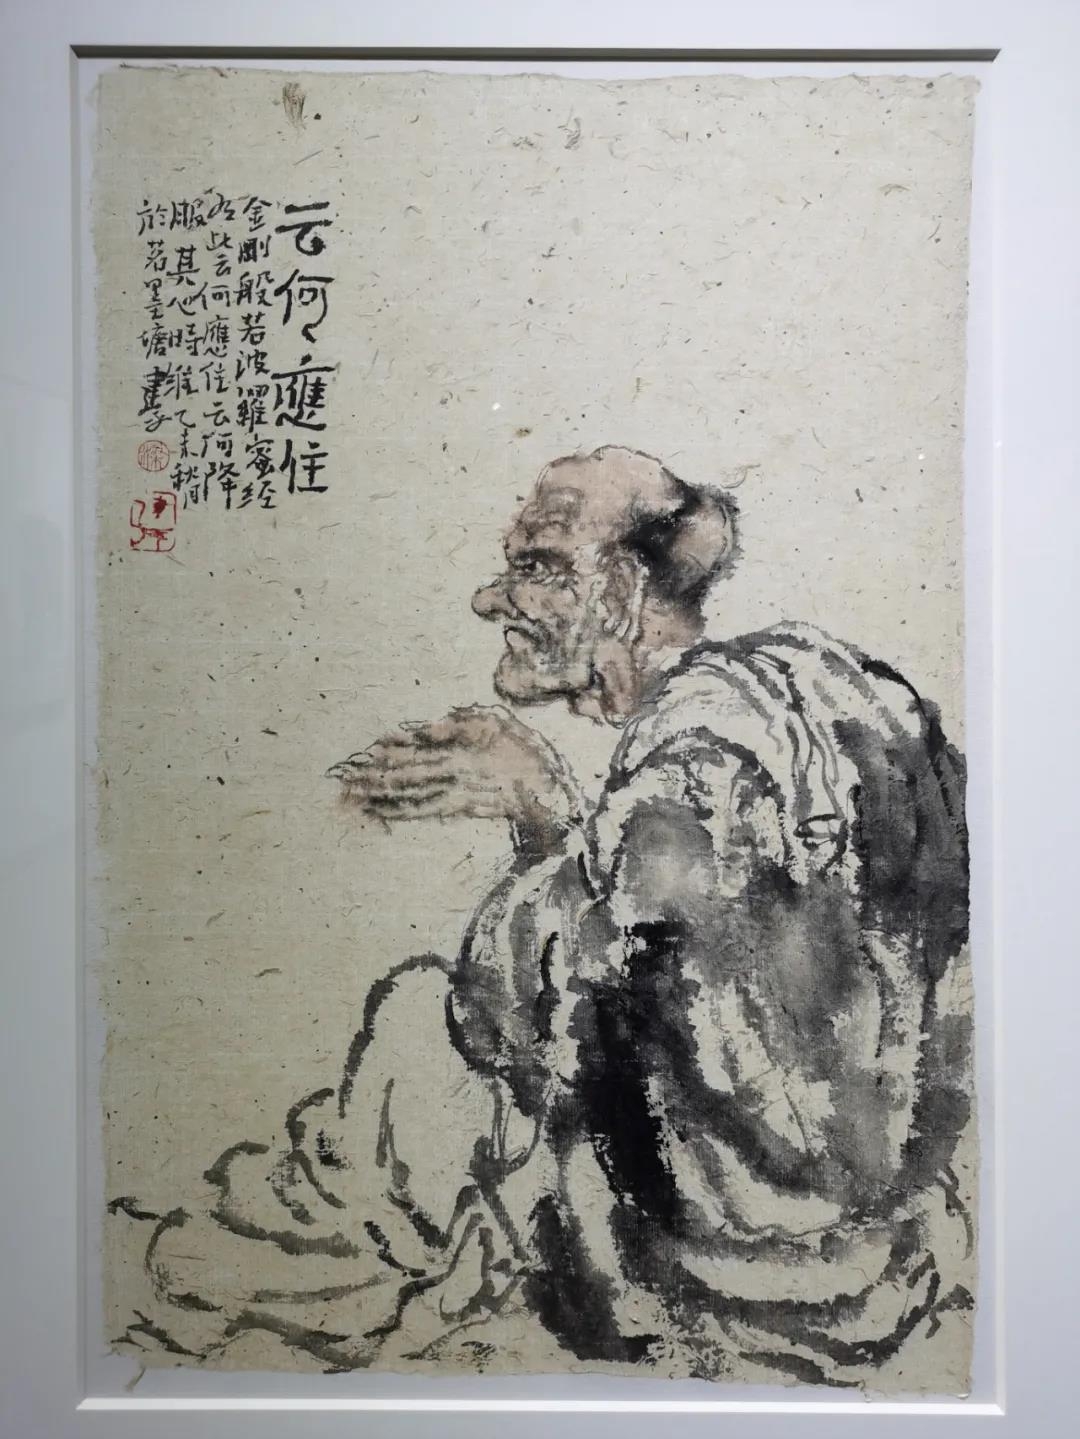 云何應住
金剛般若波羅蜜经
此云何應住云何降
服其心時維乙未秋月
於若墨塘